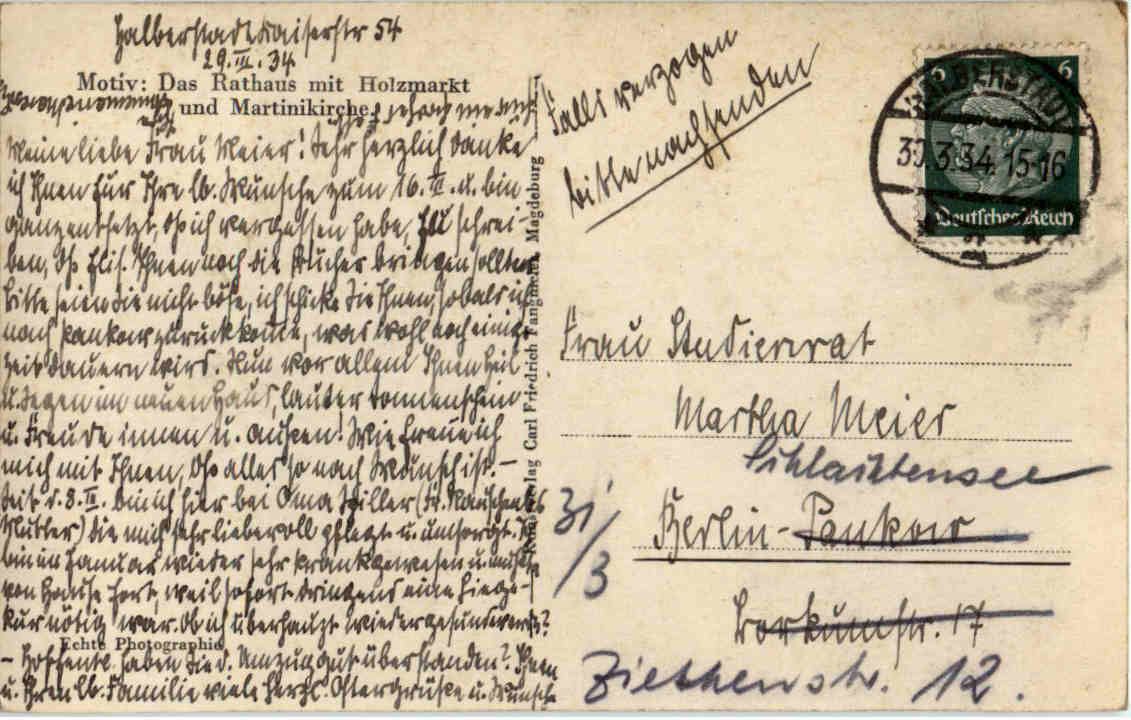 Halberstadt Kaiserstr 54
29.III.34
Motiv: Das Rathaus mit Holzmarkt
und Martinikirche
Meine liebe Frau Meier! Sehr herzlich danke
ich Ihnen für Ihre lb. Wünsche zum 16. u. bin
ganz entsetzt, daß ich vergessen habe, zu schrei-
ben, daß Ihnen noch die Bücher bringen sollte.
Bitte seien Sie nicht böse, ich schicke sie Ihnen, sobald ich
nach Pankow zurückkomme, was wohl noch einige
Zeit dauern wird. Nun vor allem Ihnen Heil
u. Segen im neuen Haus, lauter Sonnenschein
u. Freude innen u. außen! Wie freue ich
mich mit Ihnen, daß alles so nach Wunsch ist. –
Seit d. 8. bin ich hier bei Oma Hiller (Fr.
Mutter) die mich sehr liebevoll pflegt u. umsorgt. Ich
bin im Januar wieder sehr krank gewesen u. mußte
von Hause fort, weil sofort dringend eine Liege-
kur nötig war. Ob ich überhaupt wieder gesund werde?
Echte Photographie
– Hoffentl. haben Sie d. Umzug gut überstanden? Ihnen
u. Ihrer lb. Familie viele herzl. Ostergrüße u. Wünsche
Verlag Carl Friedrich Fangmeier, Magdeburg
Falls verzogen
bitte nachsenden
6 6
HALBERSTADT
30.3.34. 15-16
Deutsches Reich
Frau Studienrat
Martha Meier
Schlachtensee
31/3
Berlin-Pankow
Borkumstr. 17
Ziethenstr. 12.